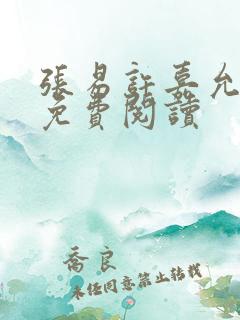 張易許嘉允
免費閱讀
喬良
未经同意禁止转载